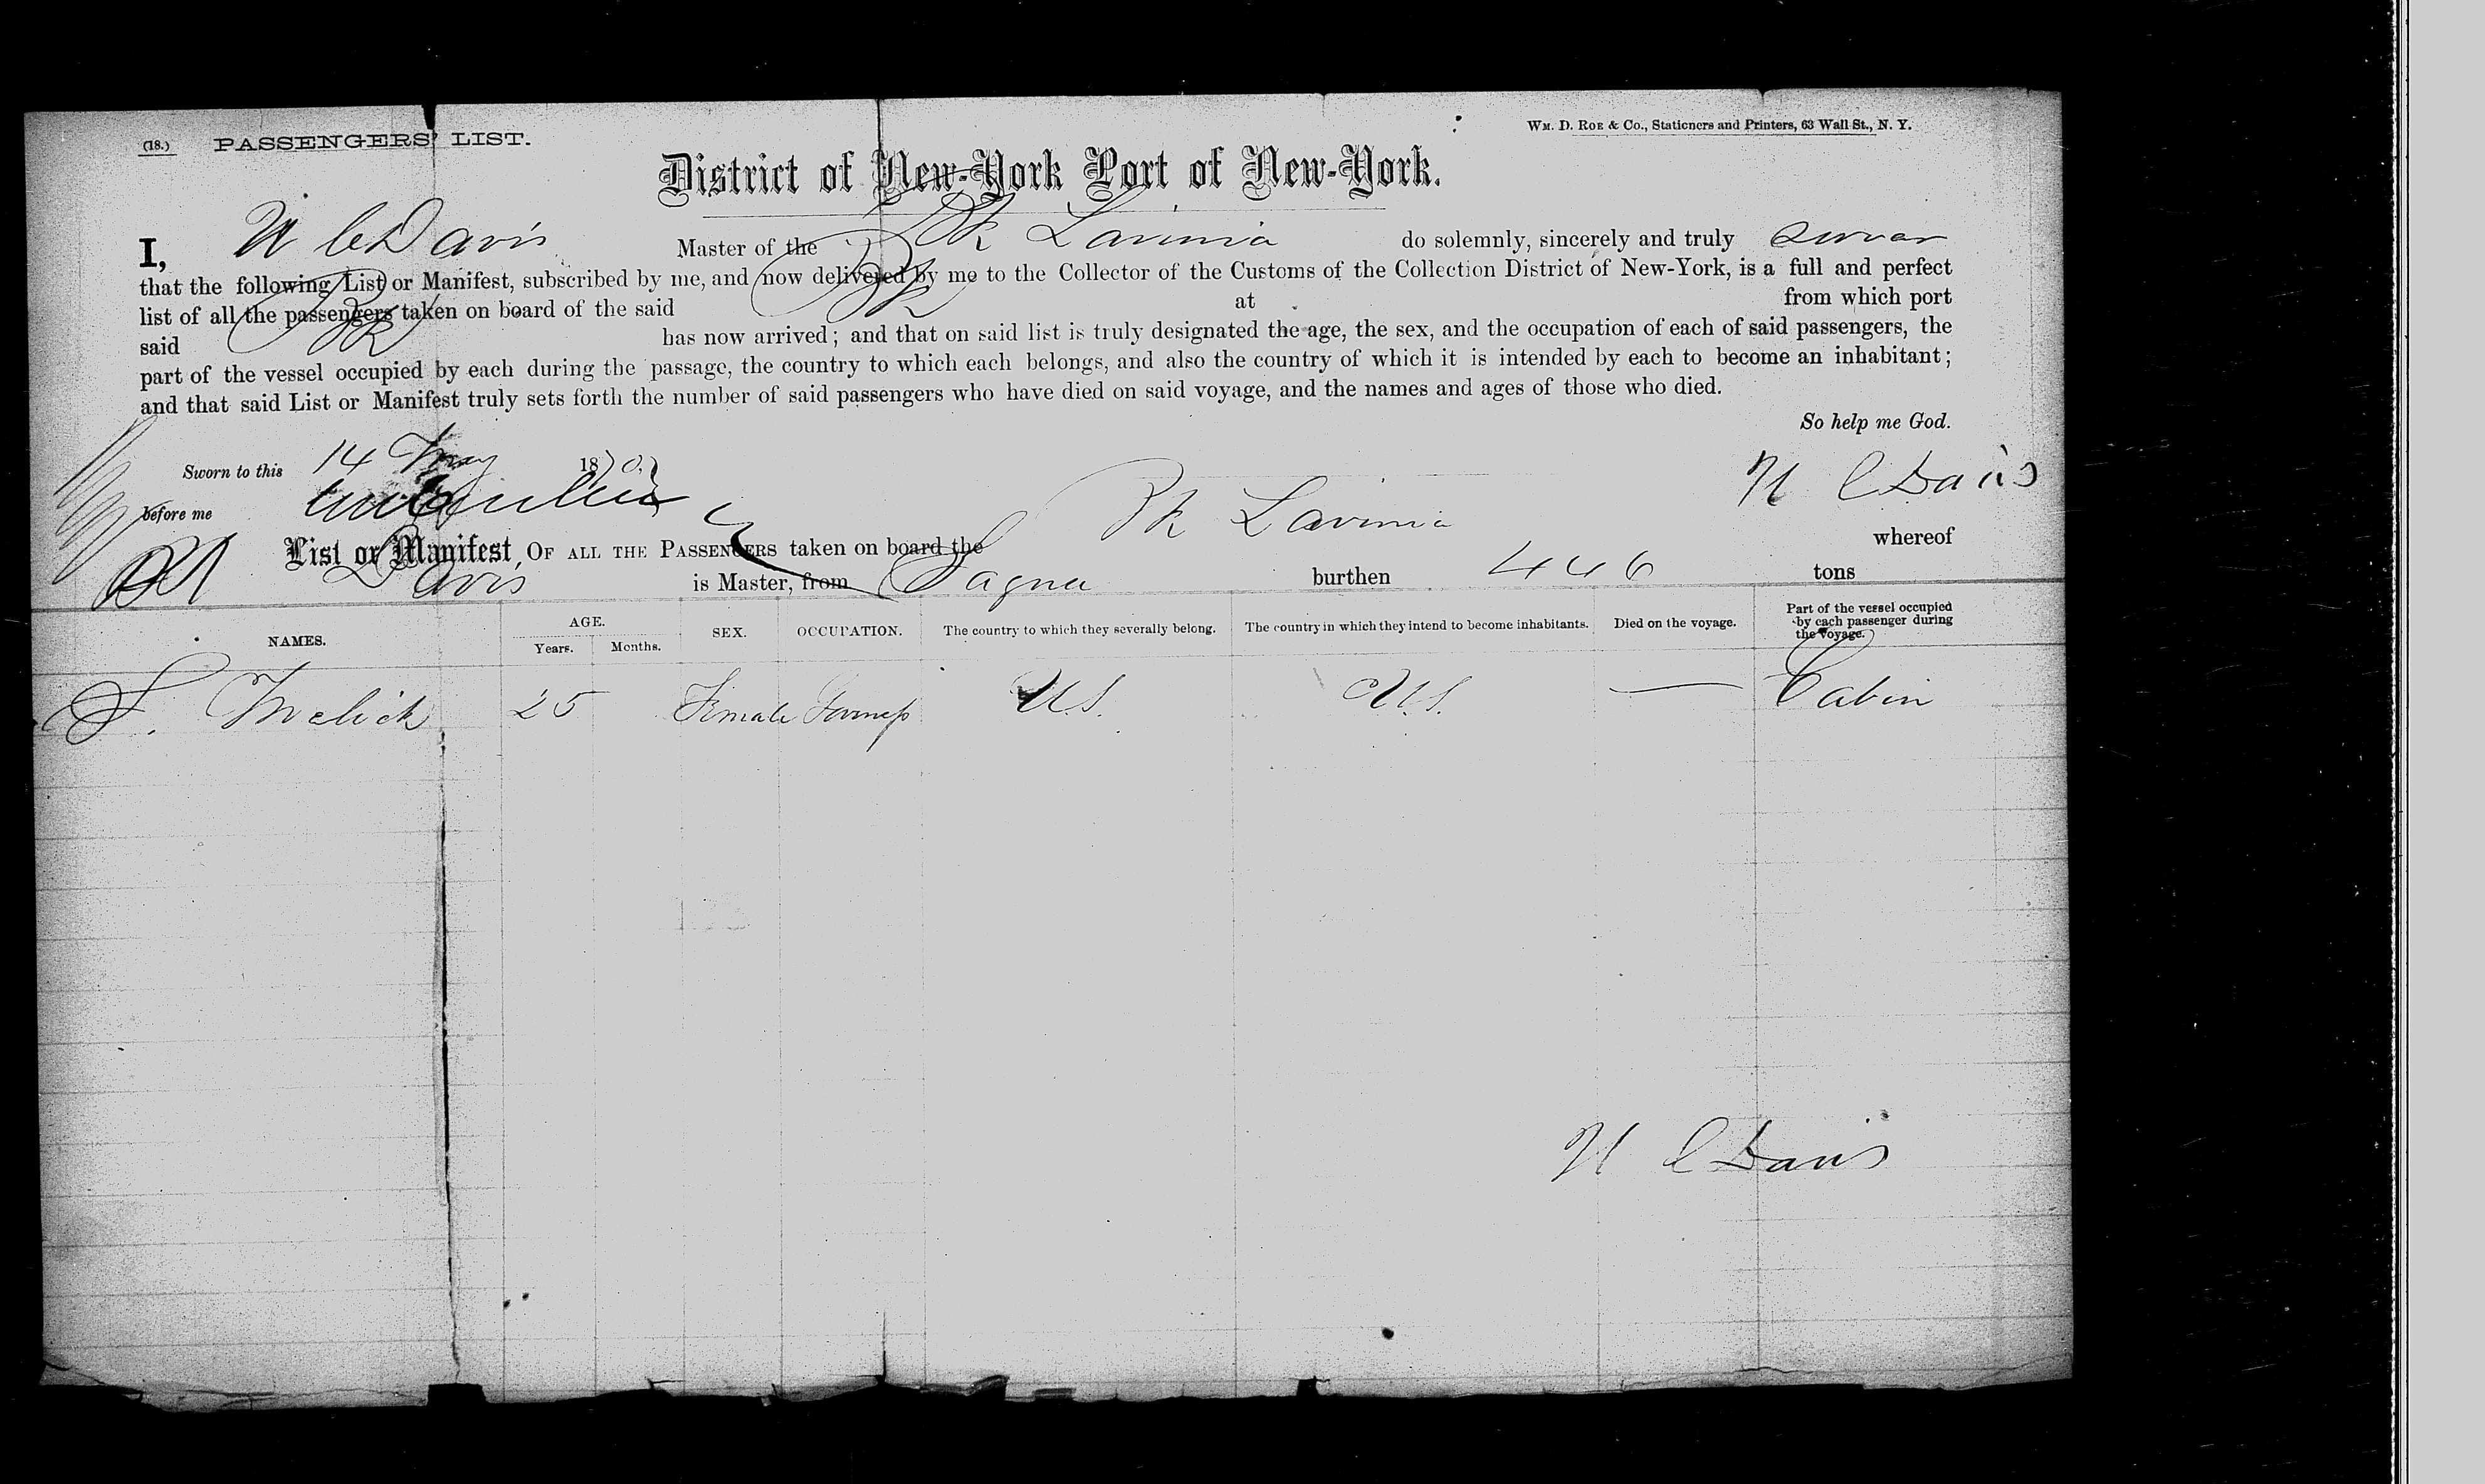 (18.) PASSENGERS' LIST.
WM. D. ROE & Co., Stationers and Printers, 63 Wall St., N. Y.
District of New-York Port of New-York.
I, N C Davis Master of the Bk Lavinia do solemnly, sincerely and truly swear
that the following List or Manifest, subscribed by me, and now delivered by me to the Collector of the Customs of the Collection District of New-York, is a full and perfect
list of all the passengers taken on board of the said Bk at from which port
said Bk has now arrived; and that on said list is truly designated the age, the sex, and the occupation of each of said passengers, the
part of the vessel occupied by each during the passage, the country to which each belongs, and also the country of which it is intended by each to become an inhabitant;
and that said List or Manifest truly sets forth the number of said passengers who have died on said voyage, and the names and ages of those who died.
So help me God.
Sworn to this 14 May 1870
N C Davis
before me
List or Manifest, OF ALL THE PASSENGERS taken on board the Bk Lavinia whereof
Davis is Master, from Sagua burthen 446 tons
NAMES. AGE. Years. Months. SEX. OCCUPATION. The country to which they severally belong. The country in which they intend to become inhabitants. Died on the voyage. Part of the vessel occupied by each passenger during the voyage.
S. Melick 25 Female U.S. U.S. — Cabin
N C Davis